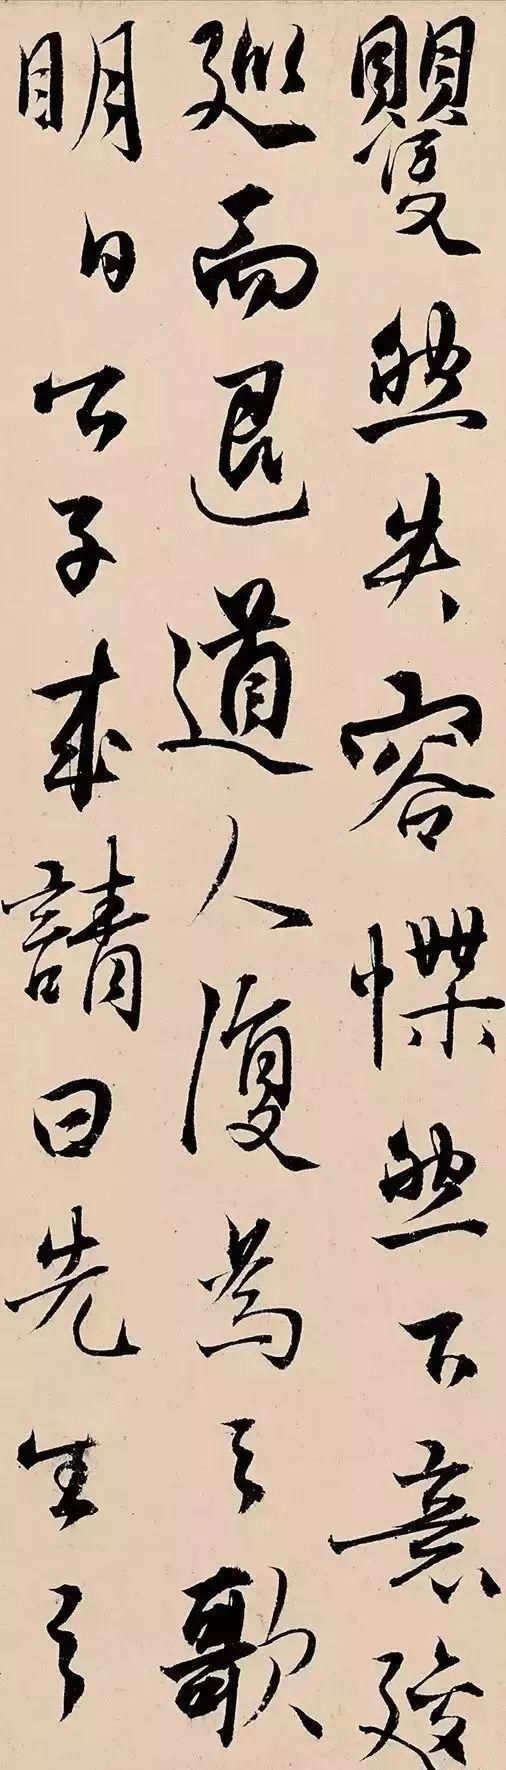 矍然失容㦬然下意逡
巡而退道人復為之歌
明日公子來請曰先生之